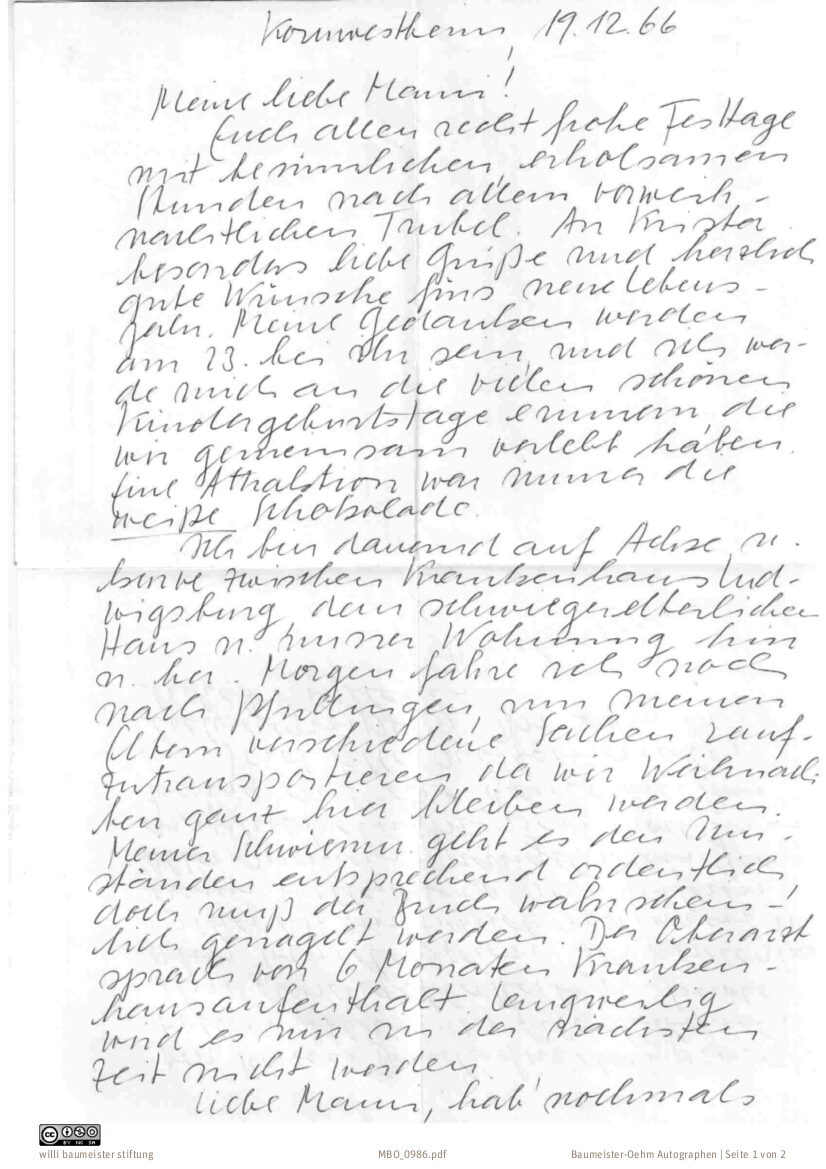 Kornwestheim, 19.12.66
Meine liebe Mann!
Euch allen recht frohe Festtage
mit besinnlichen, erholsamen
Stunden nach allem vorweih-
nachtlichen Trubel. An Krista
besonders liebe Grüße und herzlich
gute Wünsche fürs neue Lebens-
jahr. Meine Gedanken werden
am 23. bei ihr sein, und ich wer-
de mich an die vielen schönen
Kindergeburtstage erinnern, die
wir gemeinsam verlebt haben.
Eine Attraktion war immer die
weiße Schokolade.
Ich bin dauernd auf Achse u.
kurve zwischen Krankenhaus Lud-
wigsburg, dem schwiegerelterlichen
Haus u. unsrer Wohnung hin
u. her. Morgen fahre ich noch
nach Pfullingen, um meinen
Eltern verschiedene Sachen rauf-
zutransportieren, da wir Weihnach-
ten ganz hier bleiben werden.
Meiner Schwiemu. geht es den Um-
ständen entsprechend ordentlich,
doch muß der Bruch wahrschein-
lich genagelt werden. Der Oberarzt
sprach von 6 Monaten Kranken-
hausaufenthalt. Langweilig
wird es mir in der nächsten
Zeit nicht werden.
Liebe Mann, hab' nochmals
CC BY NC SA
willi baumeister stiftung
MBO_0986.pdf
Baumeister-Oehm Autographen | Seite 1 von 2